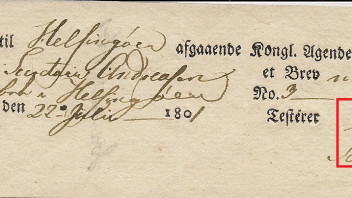 til Helsingöer afgaaende Kongl. Agende
Secretair Andreasen et Brev
i Helsingöer No. 3
den 22 Julii 1801 Testerer